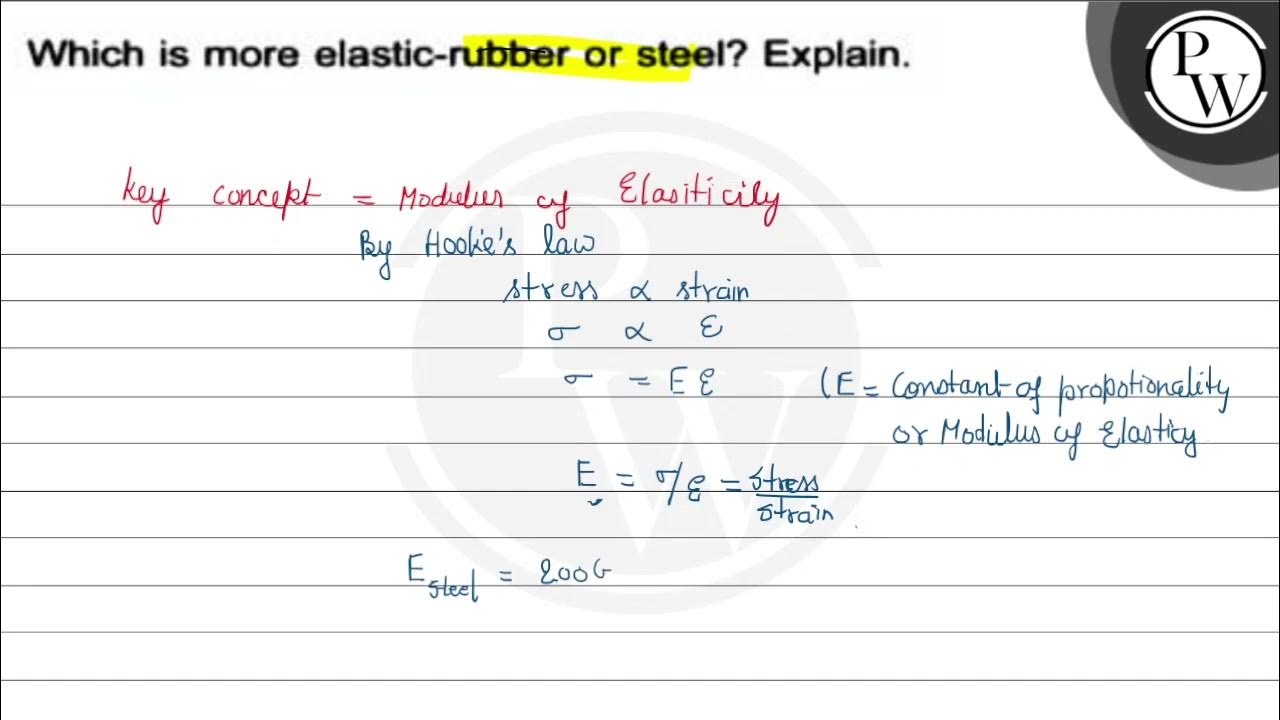 Which is more elastic-rubber or steel? Explain.
P
W
key concept = Modulus of Elasiticity
By Hooke's law
stress ∝ strain
σ ∝ ε
σ = E ε (E = Constant of propotionality
or Modulus of Elasticy
E = σ/ε = stress/strain
E steel = 200G